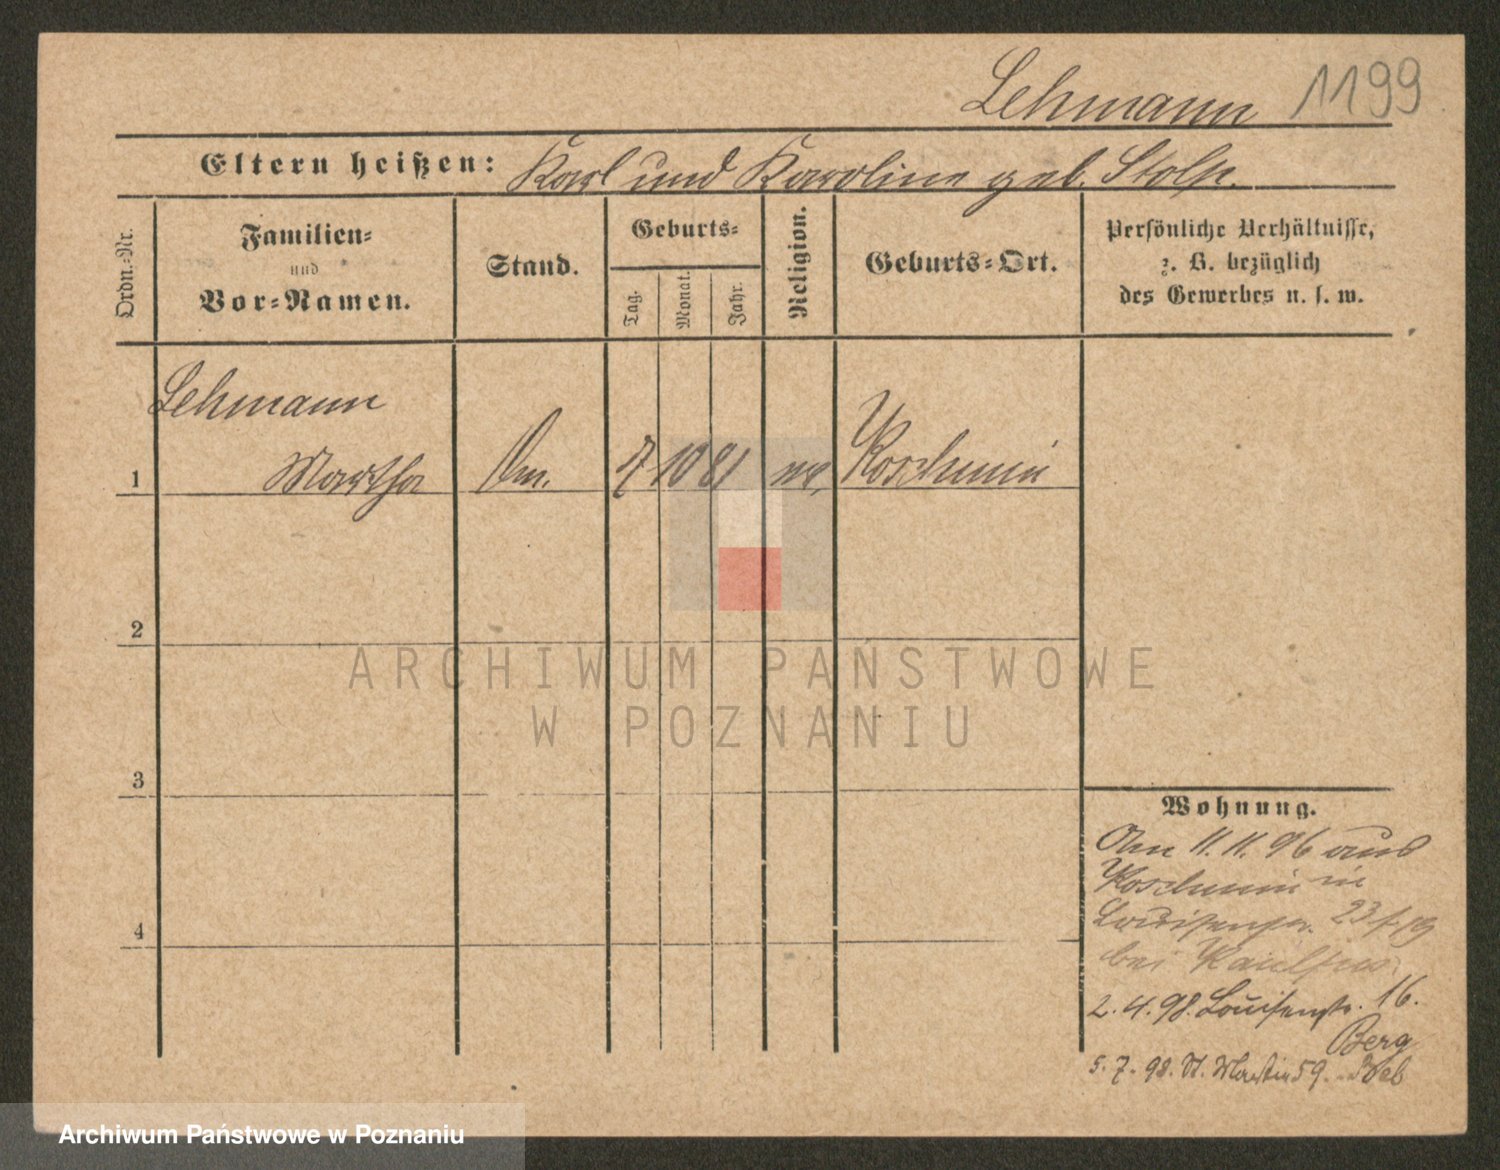 Lehmann 1199
Eltern heißen: Karl und Karoline geb. Stolp.
Ordn.-Nr.
Familien-
und
Vor-Namen.
Stand.
Geburts-
Tag.
Monat.
Jahr.
Religion.
Geburts-Ort.
Persönliche Verhältnisse,
z. B. bezüglich
des Gewerbes u. s. w.
Lehmann
1 Martha 7 10 81 Koschmin
2
3
4
ARCHIWUM PAŃSTWOWE
W POZNANIU
Wohnung.
11. 11. 96 aus
Koschmin in
Louisenstr. 23
bei
2. 4. 98. Louisenstr. 16.
Berg
5. 7. 98. St. Martin 59.
Archiwum Państwowe w Poznaniu